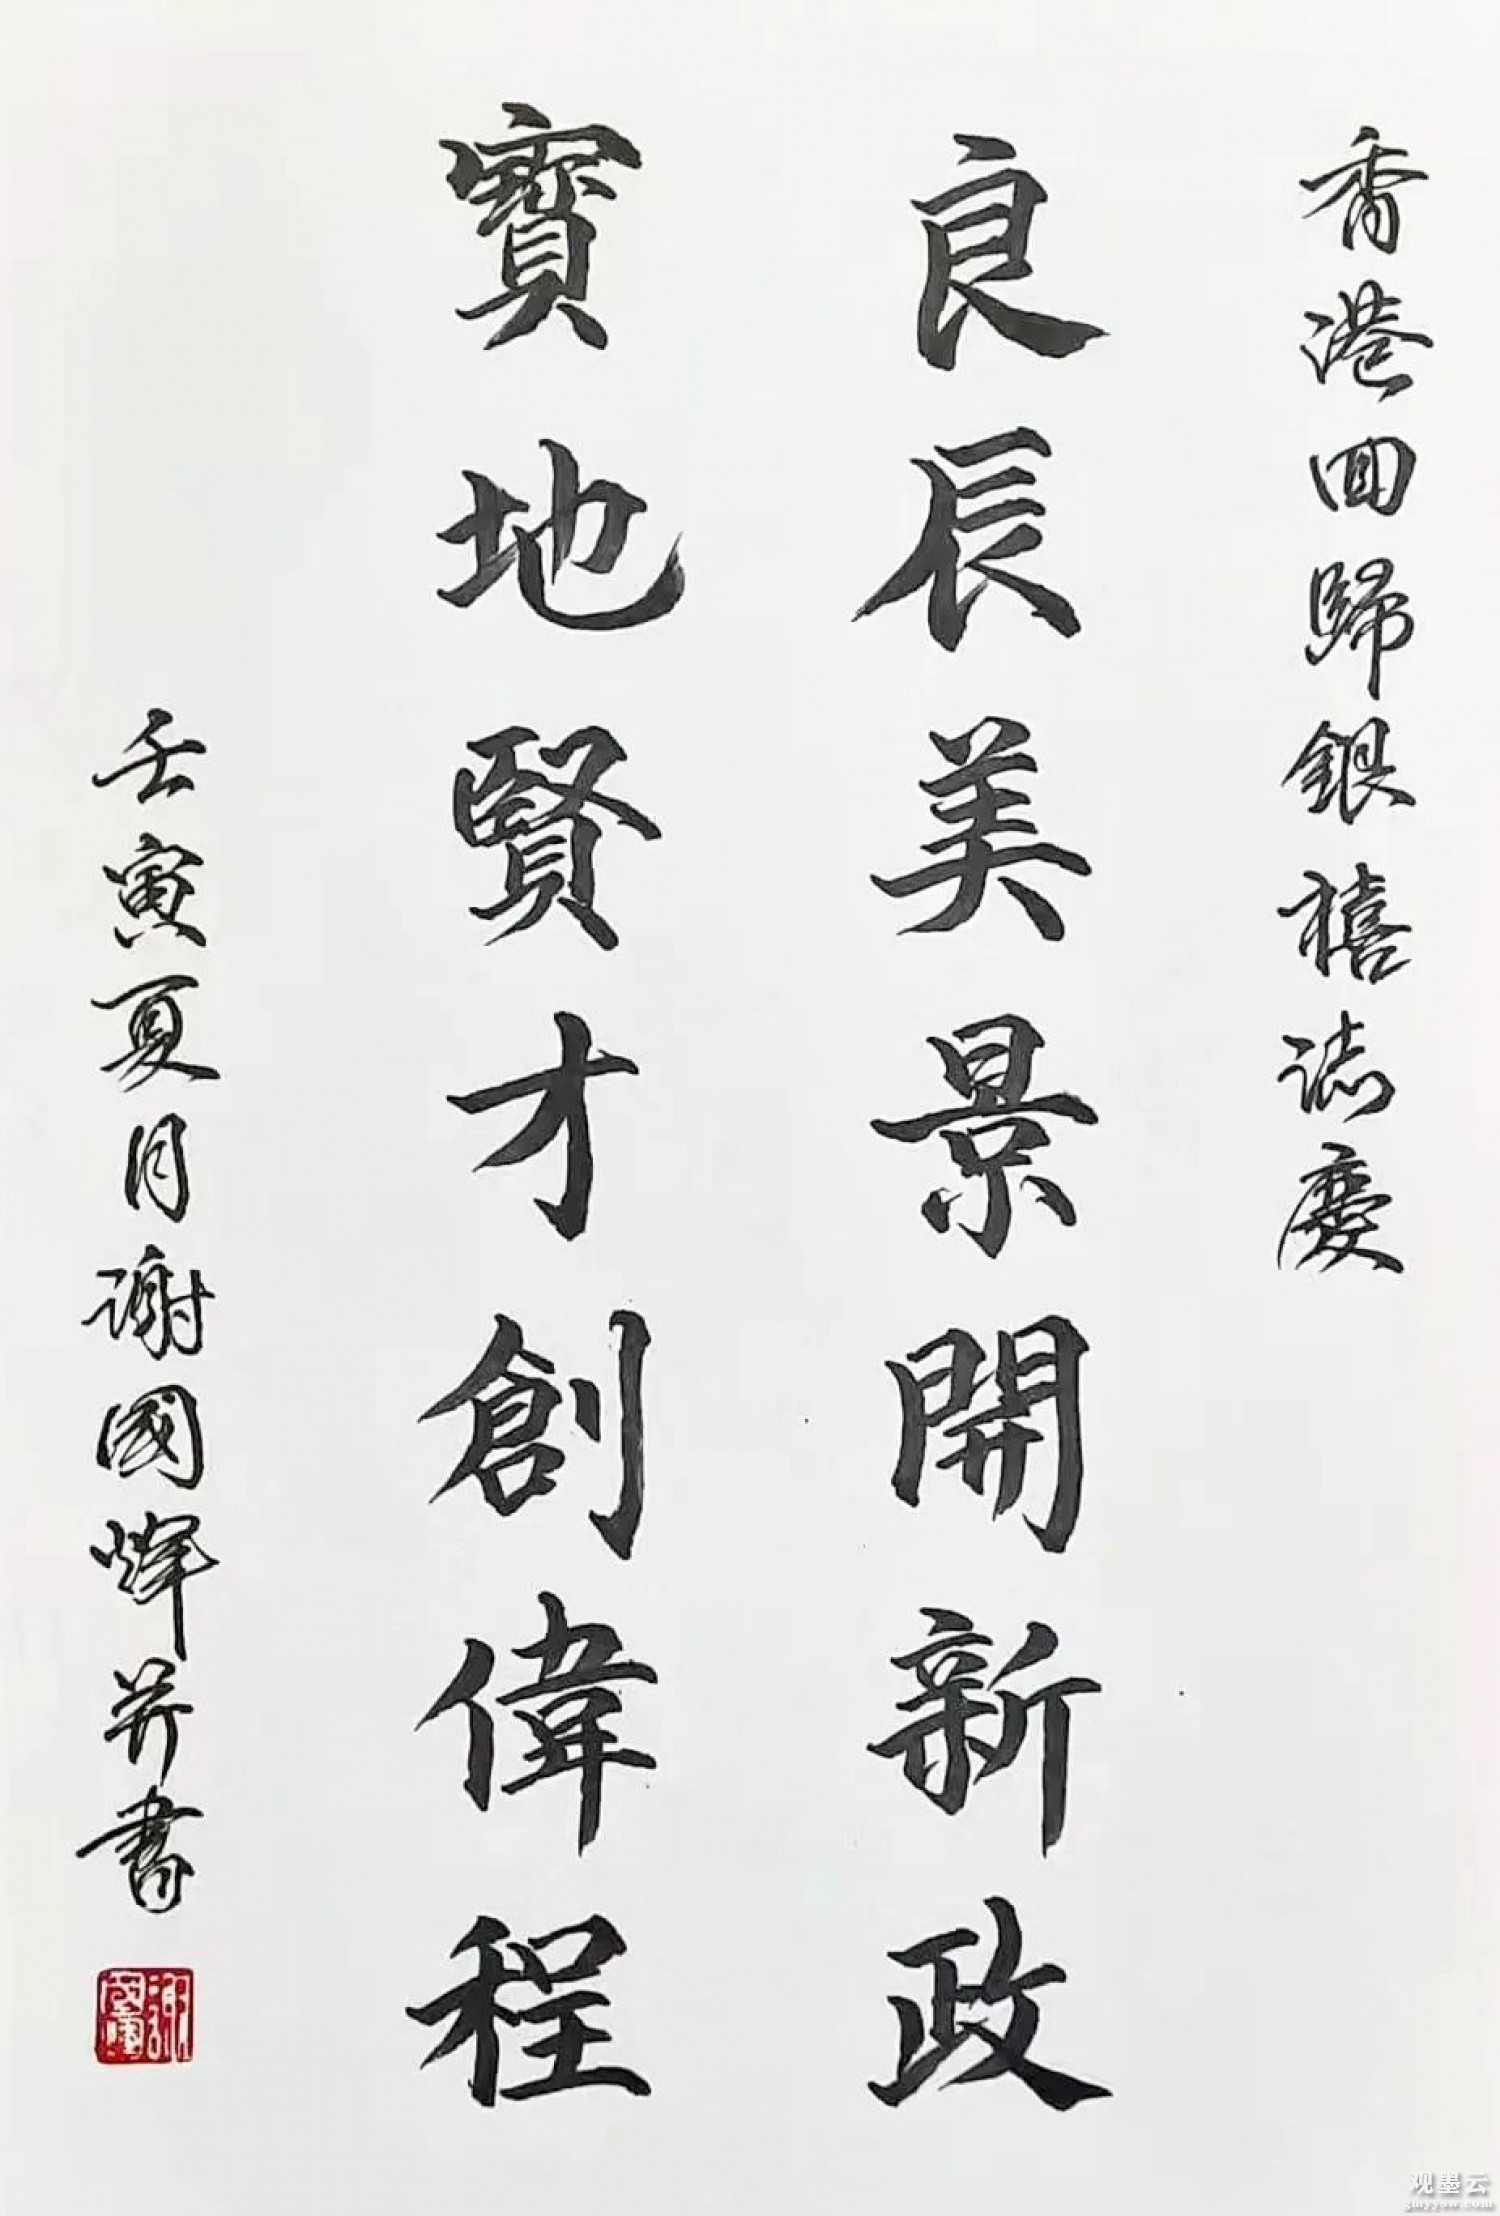 香港回歸銀禧誌慶
良辰美景開新政
寶地賢才創偉程
壬寅夏月謝國煇并書
謝國煇
观墨云
gmyysw.com